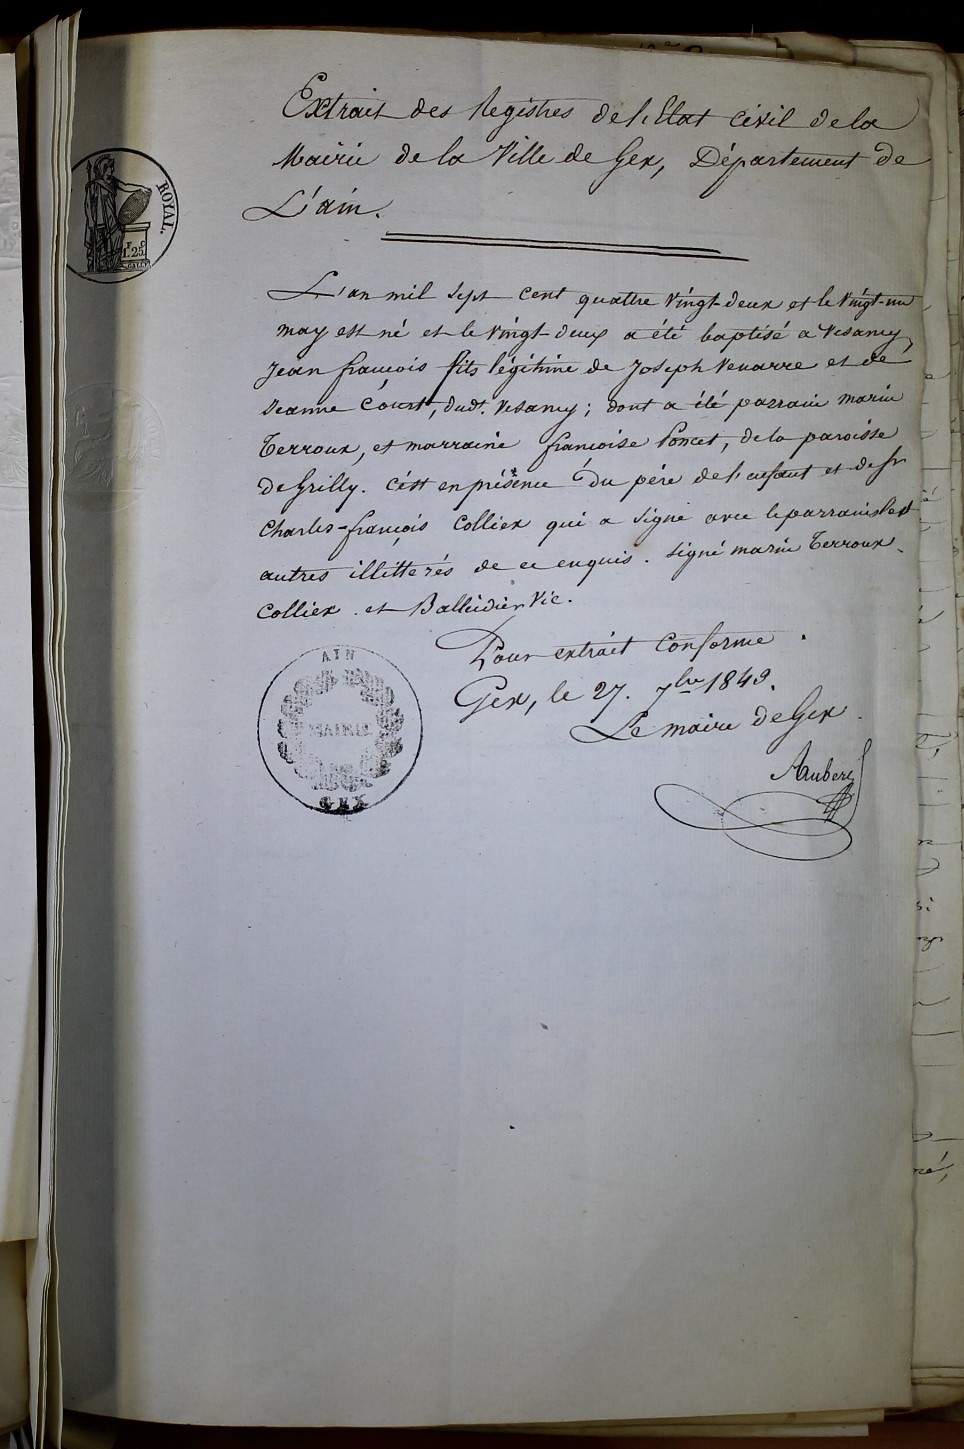 Extrait des Registres de l'Etat civil de la
Mairie de la Ville de Gex, Département de
L'ain.
ROYAL.
F. C.
1.25
L'an mil sept cent quatre vingt-deux et le vingt-un
may est né et le vingt-deux a été baptisé a Vesancy,
Jean françois fils légitime de Joseph Venarre et de
Jeanne Court, dudt. Vesancy; dont a été parrain marin
Terroux, et marraine françoise Poncet, de la paroisse
de Grilly. C'est en présence du père de l'enfant et de sr
Charles-françois Collier qui a signé avec le parrain les
autres illitterés de ce enquis. Signé marin Terroux.
Collier. et Balleidier Vic.
Pour extrait conforme.
Gex, le 27. 7bre 1849.
Le maire de Gex.
AIN
MAIRIE
GEX